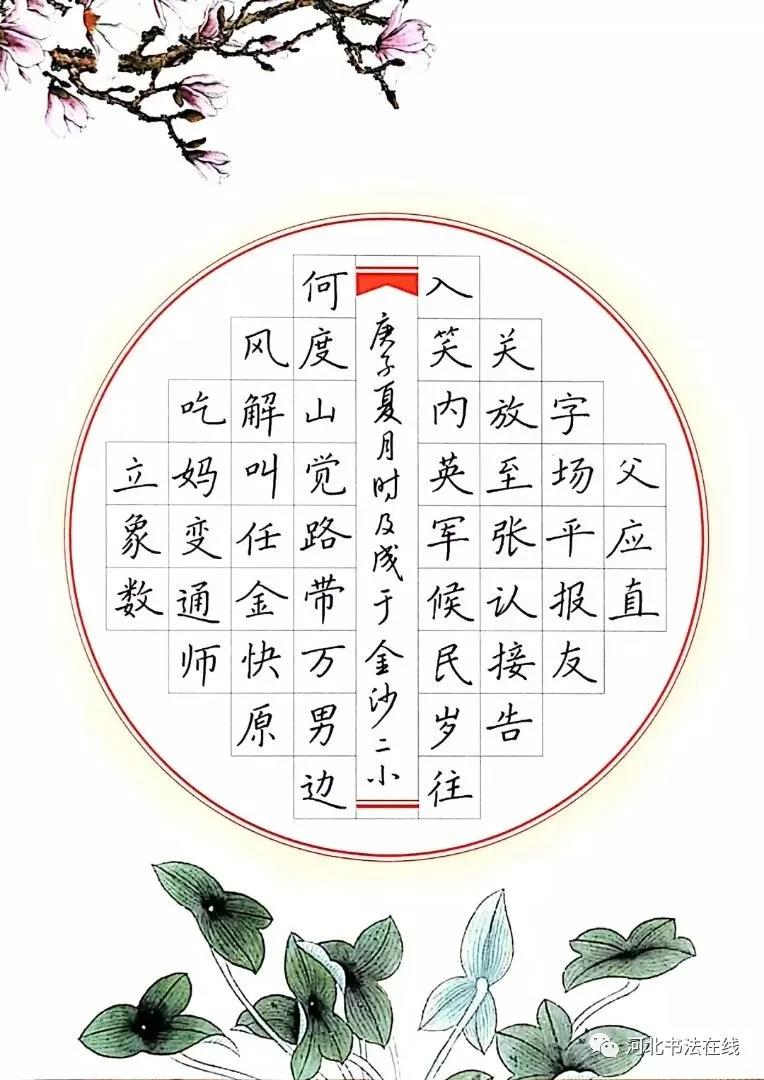 父应直
字场平报友
关放至张认接告
入笑内英军候民岁往
何度山觉路带万男边
风解叫任金快原
吃妈变通师
立象数
庚子夏月时及成于金沙二小
河北书法在线